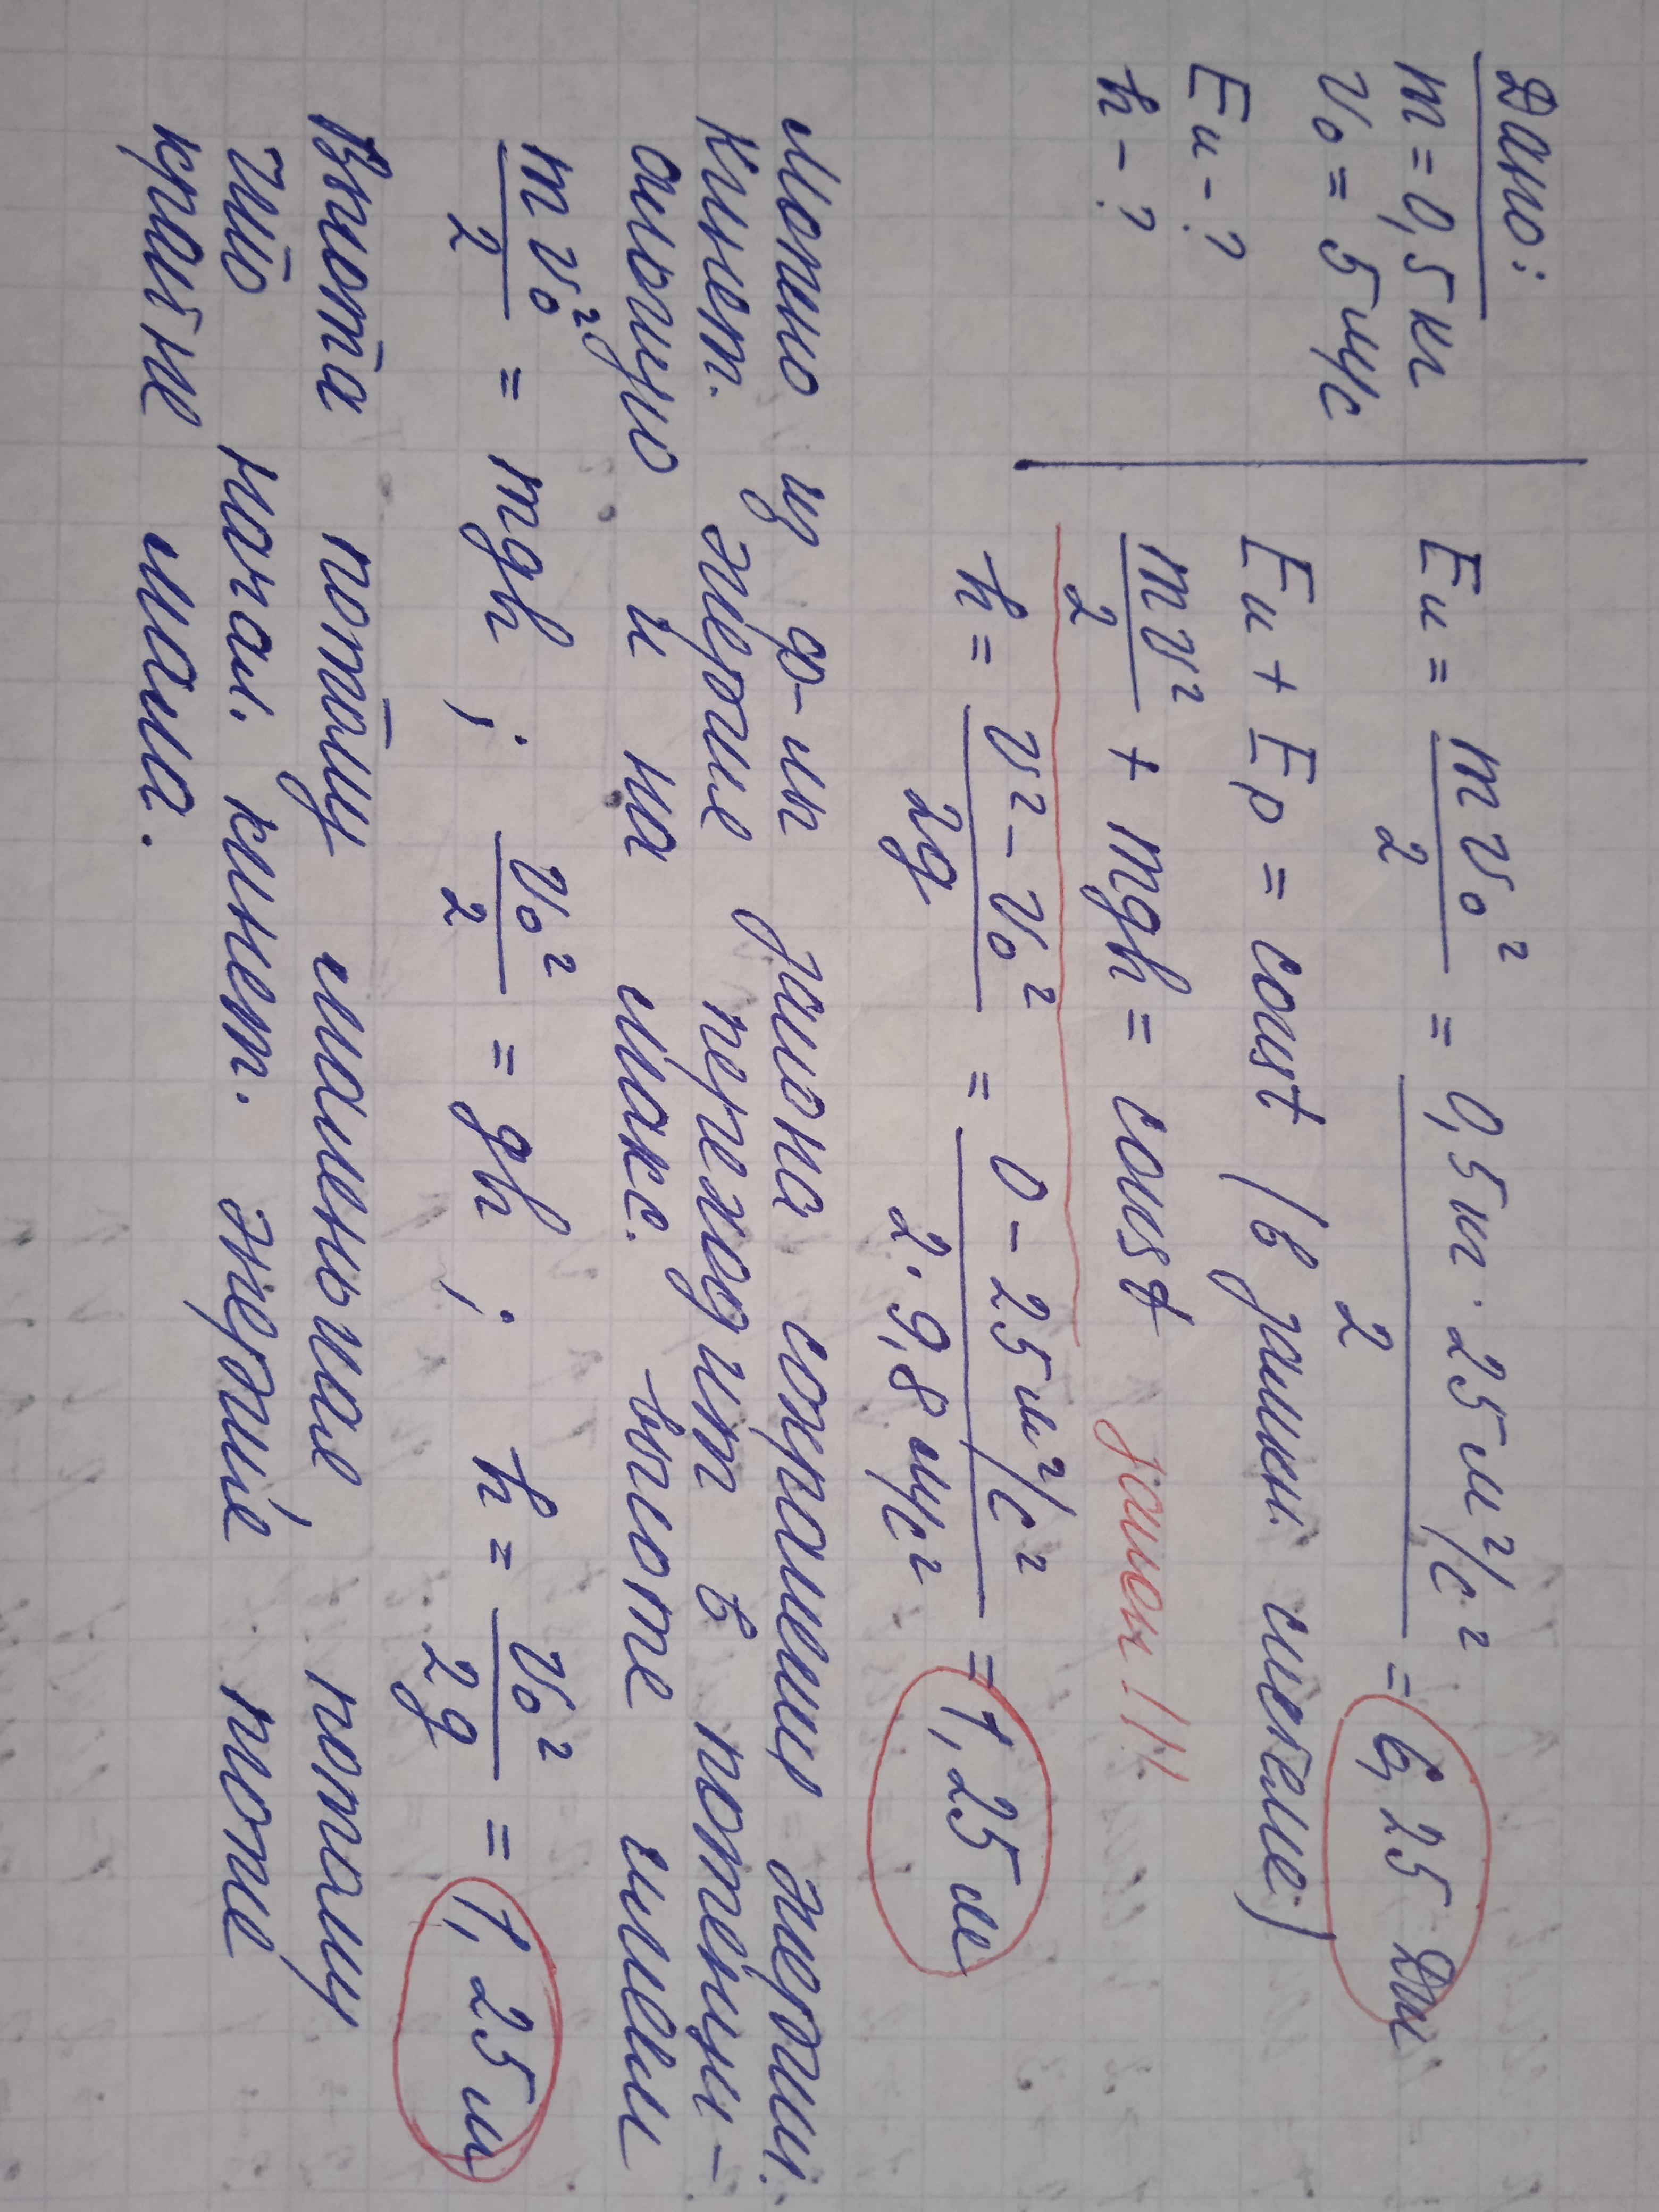 Дано:
m = 0,5 кг
v₀ = 5 м/с
Eк - ?
h - ?
Eк = mv₀²/2 = 0,5кг · 25м²/с² / 2 = 6,25 Дж
Eк + Ep = const (в замкн. системе)
mv²/2 + mgh = const закон!!!
h = v² - v₀² / 2g = 0 - 25м²/с² / 2·9,8 м/с² = 1,25 м
Можно из ф-лы закона сохранения энергии.
Кинет. энергия переходит в потенци-
альную и на макс. высоте имеем
mv₀²/2 = mgh ; v₀²/2 = gh ; h = v₀²/2g = 1,25 м
Высота потому маленькая, потому
что начал. кинет. энергия тоже
крайне мала.